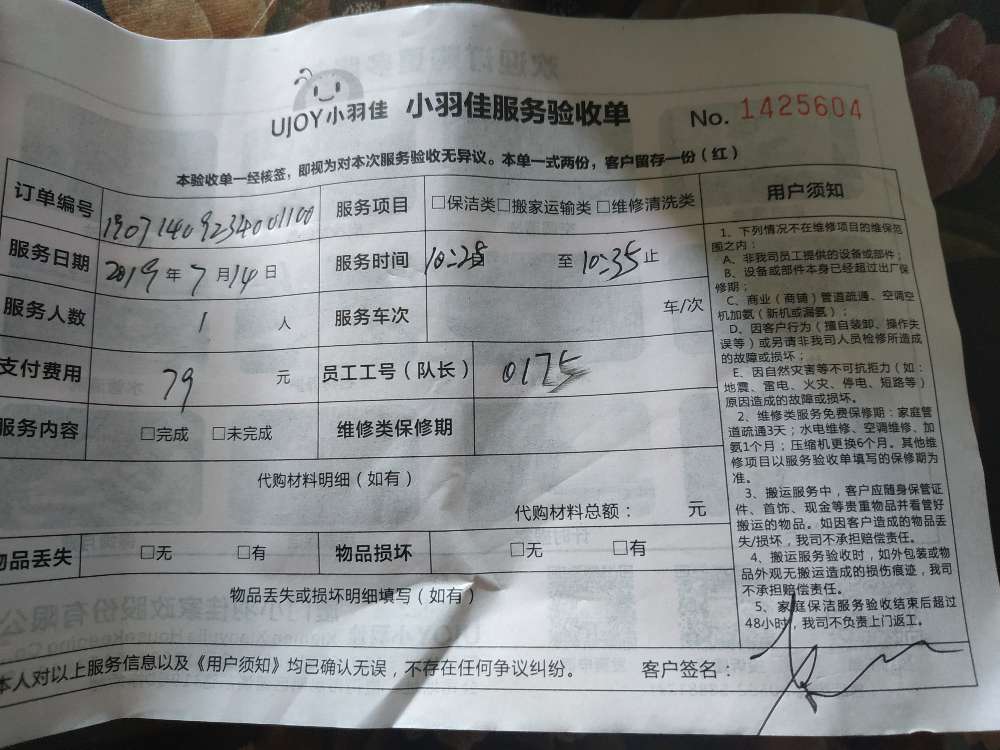 UJOY小羽佳 小羽佳服务验收单 No. 1425604
本验收单一经核签，即视为对本次服务验收无异议。本单一式两份，客户留存一份（红）
订单编号 19071409234001100 服务项目 □保洁类□搬家运输类□维修清洗类
服务日期 2019年7月14日 服务时间 至10:35止
服务人数 1人 服务车次 车/次
支付费用 79元 员工工号（队长） 0175
服务内容 □完成 □未完成 维修类保修期
代购材料明细（如有）
代购材料总额： 元
物品丢失 □无 □有 物品损坏 □无 □有
物品丢失或损坏明细填写（如有）
本人对以上服务信息以及《用户须知》均已确认无误，不存在任何争议纠纷。 客户签名：
用户须知
1、下列情况不在维修项目的维保范
围之内：
A、非我司员工提供的设备或部件；
B、设备或部件本身已经超过出厂保
修期；
C、商业（商铺）管道疏通、空调空
机加氨（新机或漏氨）；
D、因客户行为（擅自装卸、操作失
误等）或另请非我司人员检修所造成
的故障或损坏；
E、因自然灾害等不可抗拒力（如：
地震、雷电、火灾、停电、短路等）
原因造成的故障或损坏。
2、维修类服务免费保修期：家庭管
道疏通3天；水电维修、空调维修、加
氨1个月；压缩机更换6个月。其他维
修项目以服务验收单填写的保修期为
准。
3、搬运服务中，客户应随身保管证
件、首饰、现金等贵重物品并看管好
搬运的物品。如因客户造成的物品丢
失/损坏，我司不承担赔偿责任。
4、搬运服务验收时，如外包装或物
品外观无搬运造成的损伤痕迹，我司
不承担赔偿责任。
5、家庭保洁服务验收结束后超过
48小时，我司不负责上门返工。